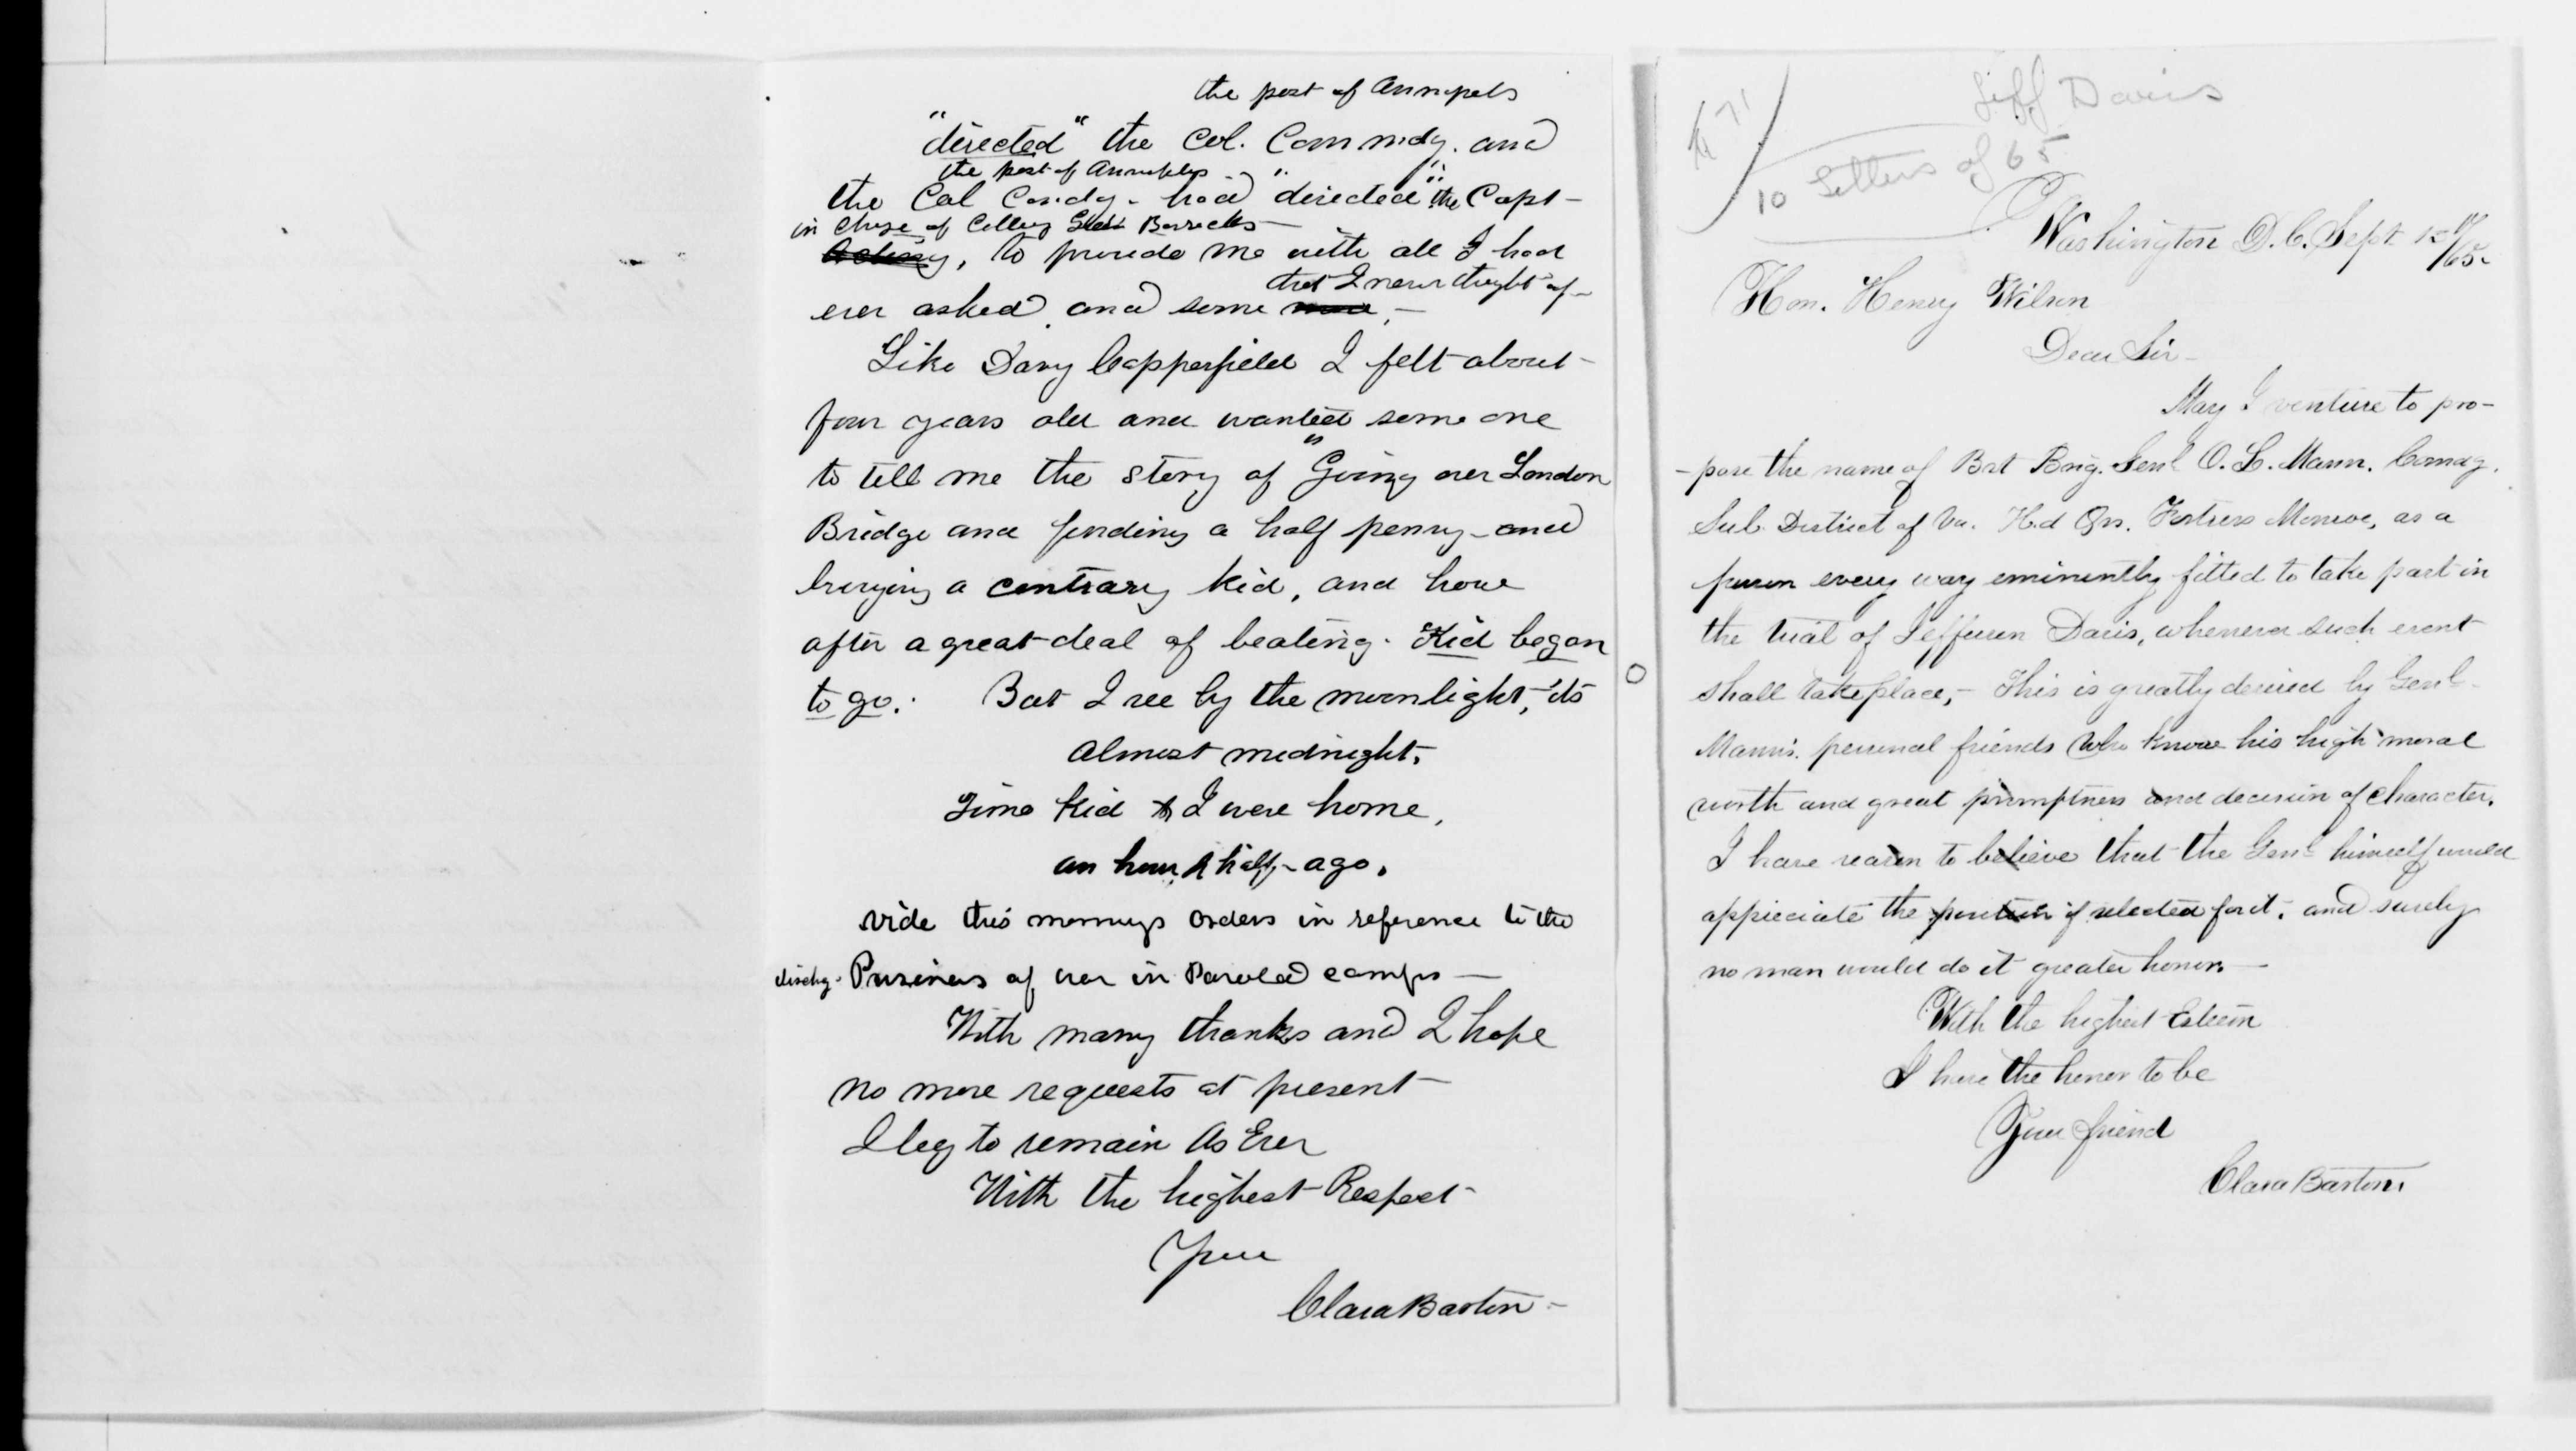 the post of Annapols
"directed" the Col. Commdg. and
the post of Annapolis
the Col Comdg - had "directed" the Capt -
in charge of College Green Barracks
Acting, to provide me with all I had
that I never thought of -
ever asked and some more, -
Like Davy Copperfield I felt about
four years old and wanted some one
to tell me the story of "Going over London
Bridge and finding a half penny - and
buying a contrary kid, and how
after a great deal of beating. Kid began
to go. But I see by the moonlight, 'ts
almost midnight.
Time Kid & I were home,
an hour & half - ago.
vide this mornings orders in reference to the
dischg. Prisoners of war in Parold camps -
With many thanks and I hope
no more requests at present -
I beg to remain As Ever
With the highest Respect -
Your
Clara Barton -
Jeff Davis
10 Letters of 65
Washington D.C. Sept /65.
Hon. Henry Wilson
Dear Sir -
May I venture to pro-
-pose the name of Bvt Brig. Genl O. L. Mann. Comdg.
Sub District of Va. Hd Qrs. Fortress Monroe, as a
person every way eminently fitted to take part in
the trial of Jefferson Davis, whenever such event
shall take place, - This is greatly desired by Genl -
Mann's. personal friends who know his high moral
worth and great promptness and decision of character.
I have reason to believe that the Genl himself would
appreciate the position if selected for it. and surely
no man would do it greater honor. -
With the highest Esteem
I have the honor to be
Your friend
Clara Barton.